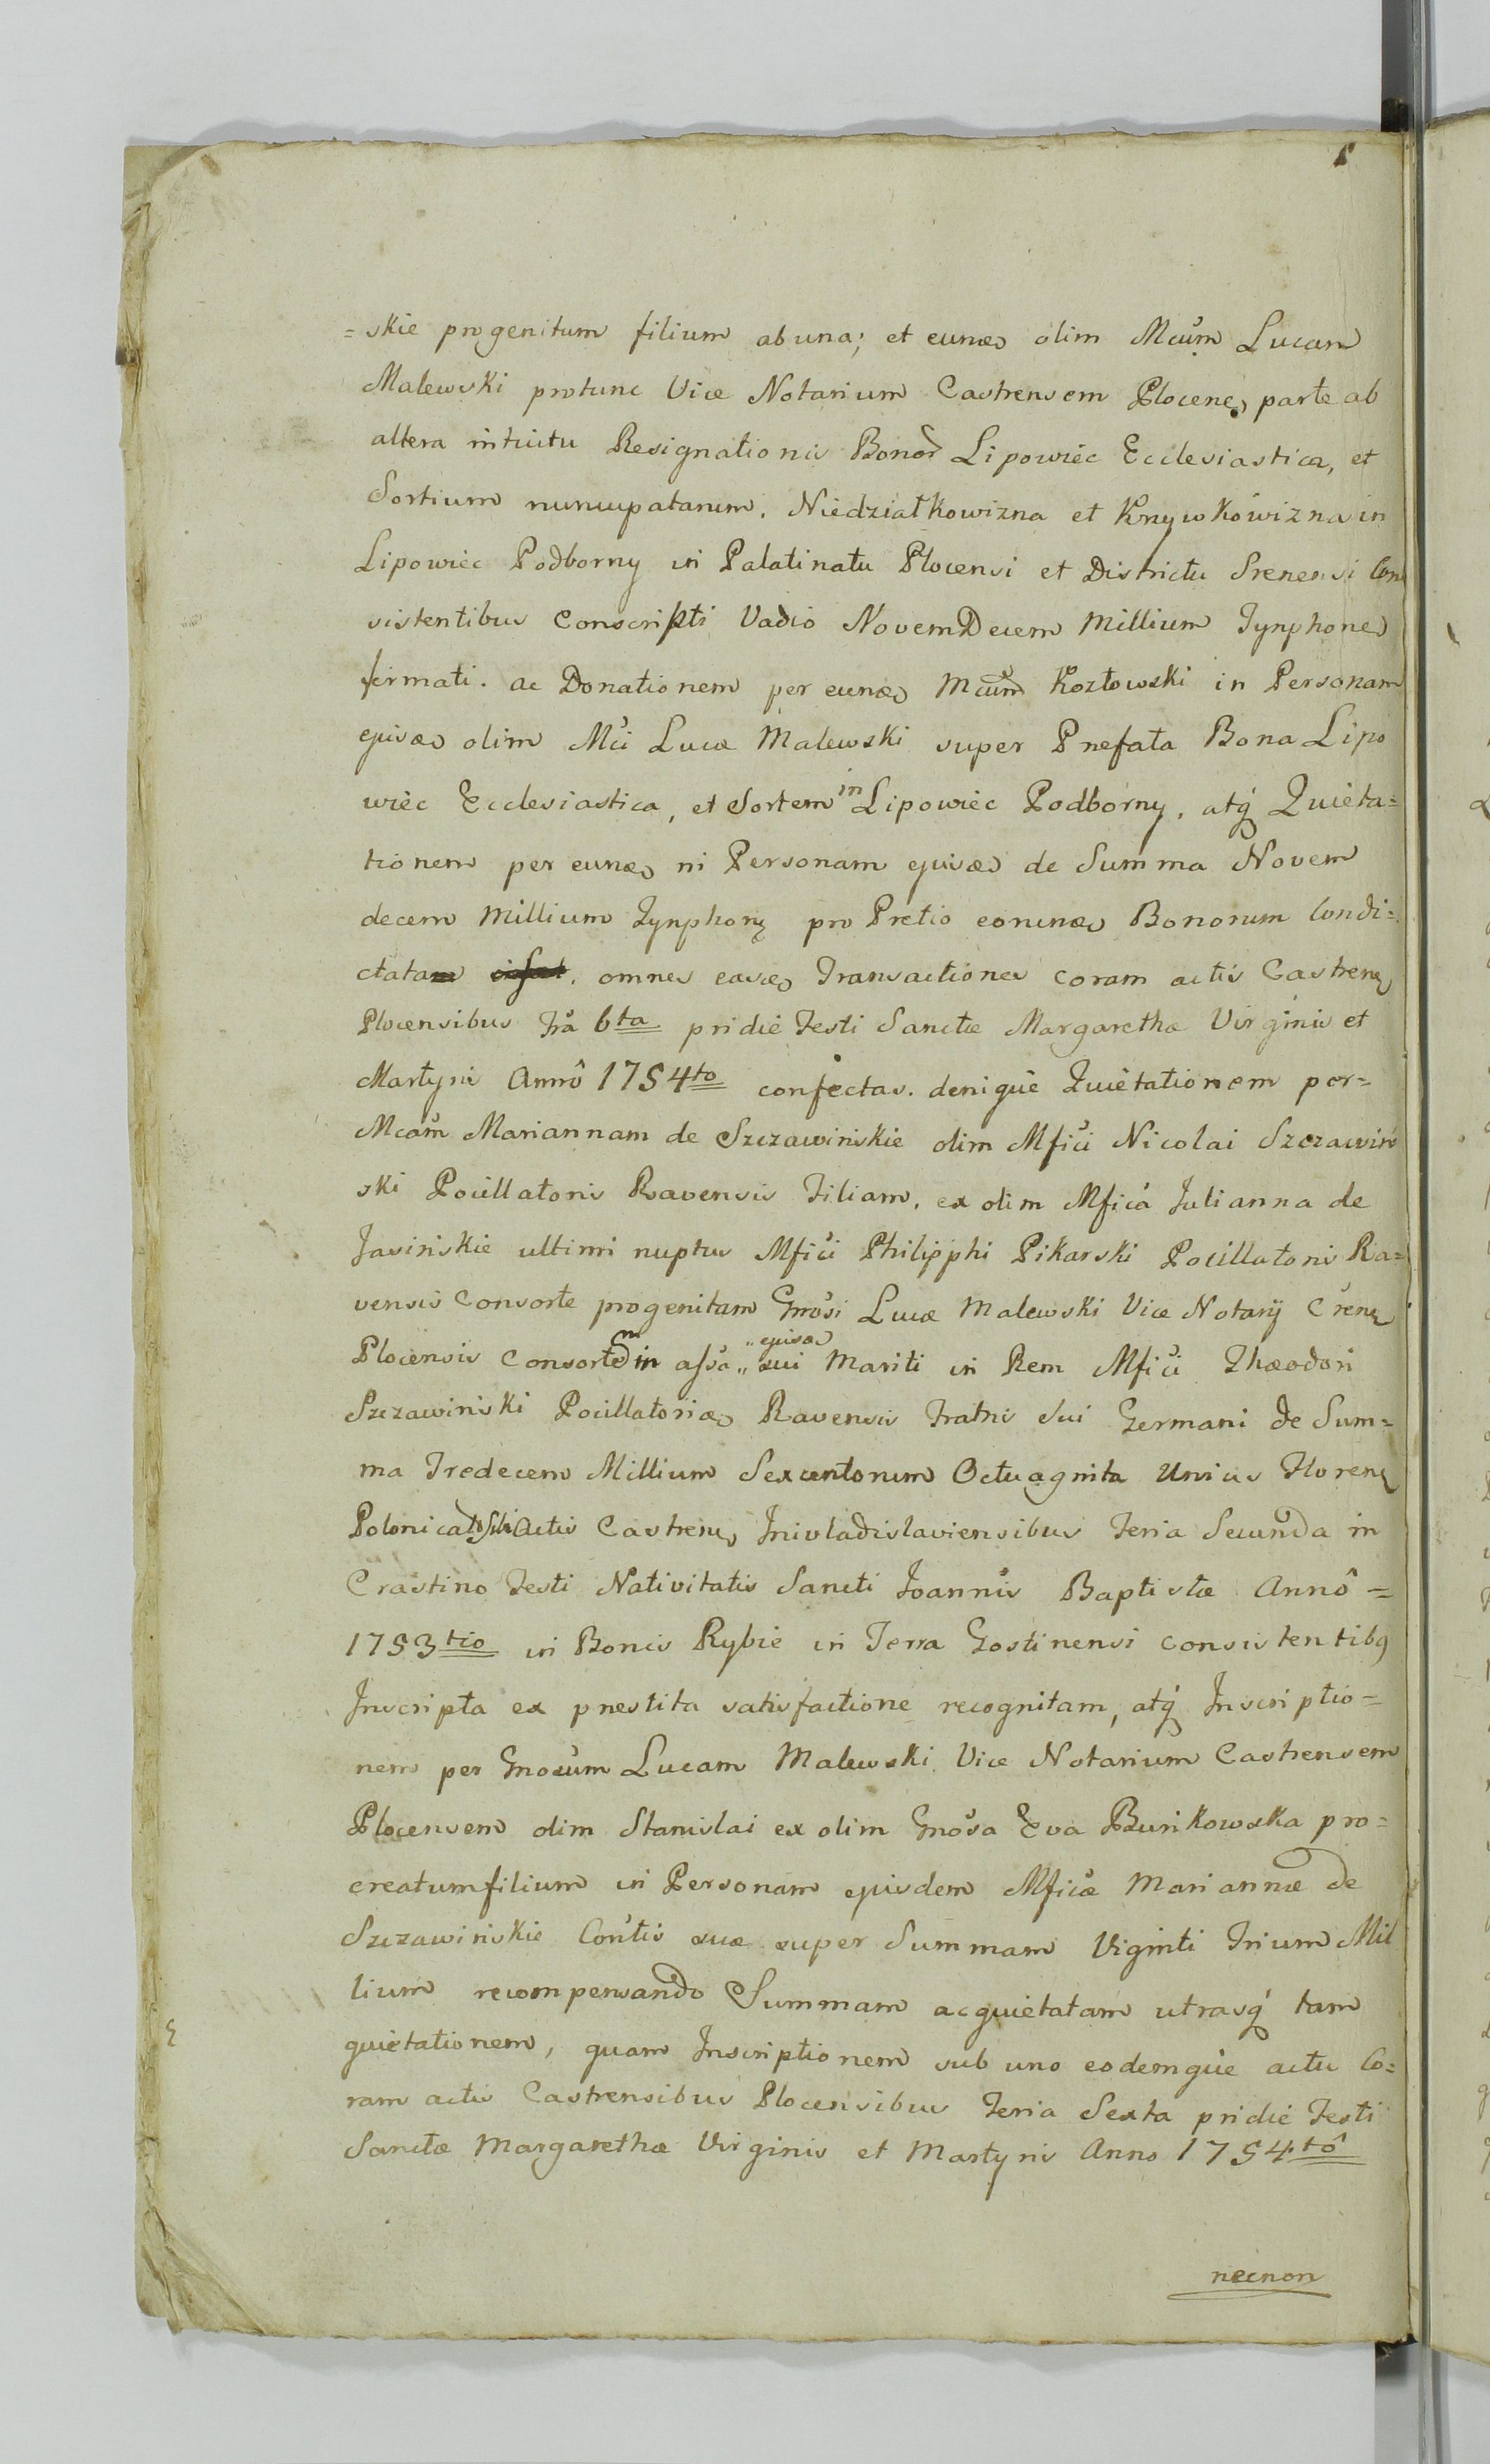 =skie progenitum filium ab una; et eunde olim Mcum Lucam
Malewski protunc Vice Notarium Castrensem Plocens parte ab
altera intuitu Resignationis Bonor Lipowiec Ecclesiastica, et
Sortium nuncupatarum. Niedziałkowizna et Krzywkowizna in
Lipowiec Podborny in Palatinatu Plocensi et Districtu Srenensi Con
sistentibus Conscripti Vadio NovemDecem Millium Tynphone
firmati. ac Donationem per eunde Mcum Kozłowski in Personam
ejusde olim Mci Lucæ Malewski super Prefata Bona Lipo
wiec Ecclesiastica, et Sortem in Lipowiec Podborny, atq Quieta=
tionem per eunde in Personam ejusde de Summa Novem
decem Millium Tynphon pro Pretio eorunde Bonorum Condi=
ctata omnes easde Transactiones coram actis Castren
Plocensibus fra 6ta pridie Festi Sanctæ Margarethæ Virginis et
Martyris Annô 1754to confectas. denique Quietationem per=
Mcam Mariannam de Szczawinskie olim Mfici Nicolai Szczawin
ski Pocillatoris Ravensis Filiam, ex olim Mfica Julianna de
Jasinskie ultimi nuptus Mfici Philipphi Pikarski Pocillatoris Ra=
vensis Consorte progenitam Gnosi Lucæ Malewski Vice Notarij Cren
Plocensis Consortem in assa „ ejusde „ sui Mariti in Rem Mfici Thæodori
Szczawinski Pocillatoris Ravensis Fratris Sui Germani de Sum=
ma Tredecem Millium Sexcentorum Octuaginta Unius Floren
Polonical Sibi Actis Castren Iniuladislaviensibus Feria Secunda in
Crastino Festi Nativitatis Sancti Joannis Baptistæ Annô =
1753tio in Bonis Rybie in Terra Gostinensi consistentibq
Inscripta ex prestita satisfactione recognitam, atq Inscriptio=
nem per Gnosum Lucam Malewski Vice Notarium Castrensem
Plocensem olim Stanislai ex olim Gnosa Eva Bunkowska pro=
creatum filium in Personam ejusdem Mficæ Mariannæ de
Szczawinskie Contis suæ super Summam Viginti Trium Mil
lium recompensando Summam acquietatam utrasq tam
quietationem, quam Inscriptionem sub uno eodemque actu Co=
ram actis Castrensibus Plocensibus Feria Sexta pridie Festi
Sanctæ Margarethæ Virginis et Martyris Anno 1754tô
necnon